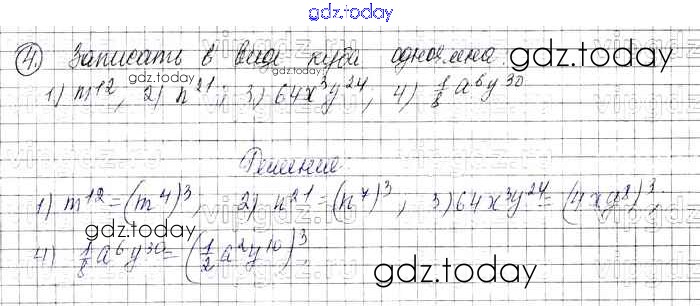 gdz.today
4. Записать в виде куба одночлена
gdz.today
gdz.today
1) m^12, 2) n^21, 3) 64x^3y^24, 4) 1/8 a^6y^30
vipgdz.ru
Решение
1) m^12 = (m^4)^3, 2) n^21 = (n^7)^3, 3) 64x^3y^24 = (4xy^8)^3.
gdz.today
4) 1/8 a^6y^30 = (1/2 a^2y^10)^3
gdz.today